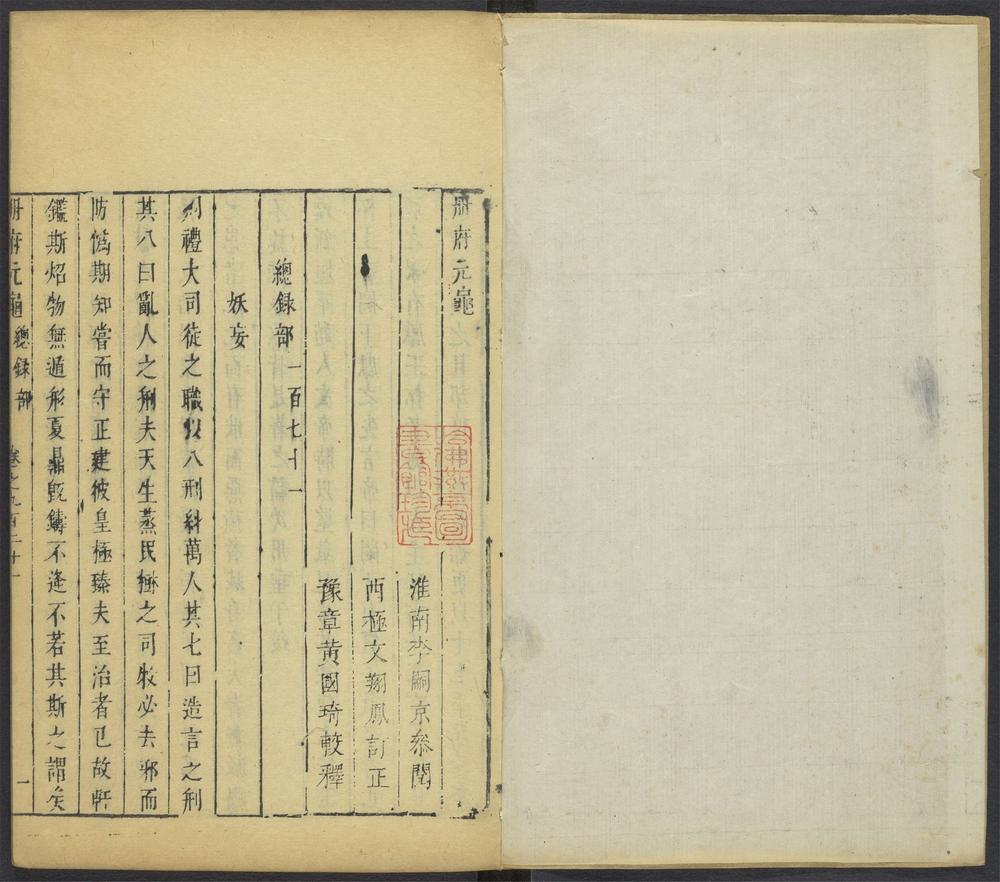 冊府元龜
淮南李嗣京叅閱
西極文翔鳳訂正
豫章黃國琦較釋
總錄部一百七十一
妖妄
禮大司徒之職以八刑糾萬人其七曰造言之刑
其八曰亂人之刑夫天生蒸民樹之司牧必去邪而
防僞期知嘗而守正建彼皇極臻夫至治者已故軒
鑑斯炤物無遁形夏鼎旣鑄不逢不若其斯之謂矣
冊府元龜總錄部 卷之九百二十一 一
哈佛燕京圖書館珍藏